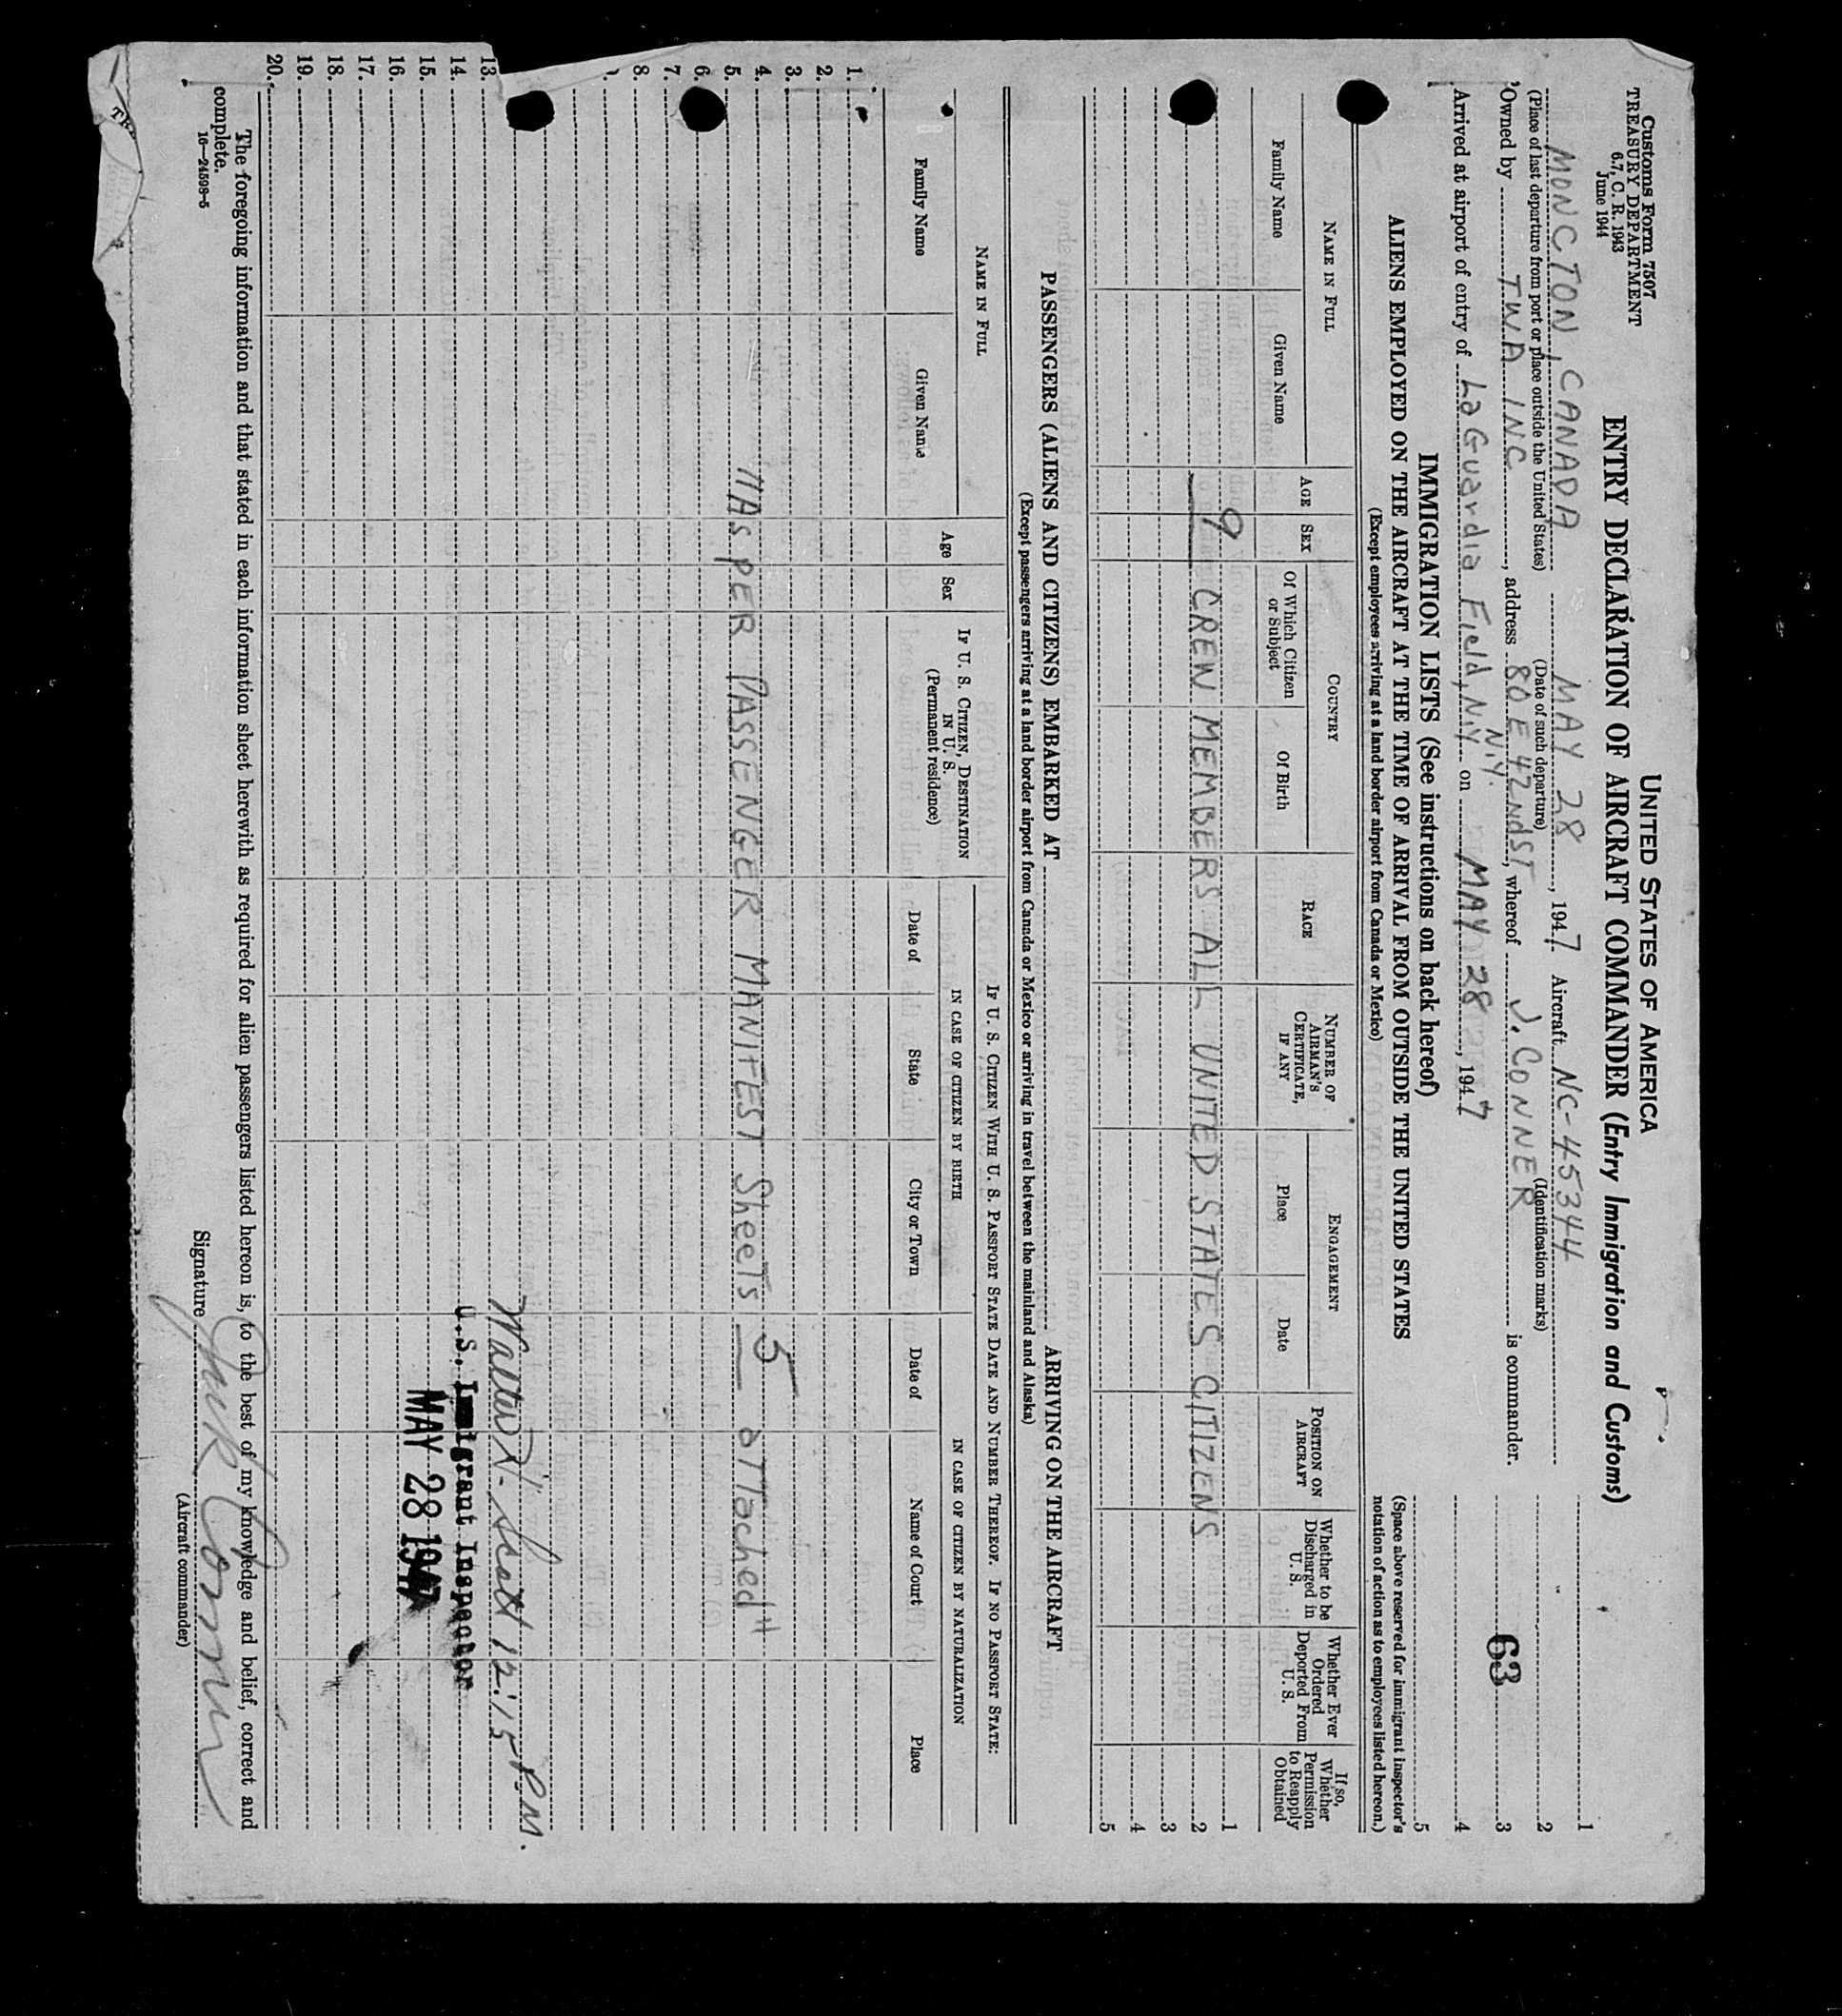 Customs Form 7507
TREASURY DEPARTMENT
6.7, C. R. 1943
June 1944
UNITED STATES OF AMERICA
ENTRY DECLARATION OF AIRCRAFT COMMANDER (Entry Immigration and Customs)
MONCTON, CANADA MAY 28, 1947 Aircraft NC-45344
(Place of last departure from port or place outside the United States) (Date of such departure) (Identification marks)
Owned by TWA INC, address 80 E 42ndST N.Y., whereof J. CONNER is commander.
Arrived at airport of entry of LaGuardia Field, N.Y. on MAY 28, 1947
1
2
3
4
5
63
(Space above reserved for immigrant inspector's
notation of action as to employees listed hereon.)
IMMIGRATION LISTS (See instructions on back hereof)
ALIENS EMPLOYED ON THE AIRCRAFT AT THE TIME OF ARRIVAL FROM OUTSIDE THE UNITED STATES
(Except employees arriving at a land border airport from Canada or Mexico)
NAME IN FULL
Family Name
Given Name
AGE
SEX
COUNTRY
Of Which Citizen
or Subject
Of Birth
RACE
NUMBER OF
AIRMAN'S
CERTIFICATE,
IF ANY
ENGAGEMENT
Place
Date
POSITION ON
AIRCRAFT
Whether to be
Discharged in
U. S.
Whether Ever
Ordered
Deported From
U. S.
If so,
Whether
Permission
to Reapply
Obtained
1
2
3
4
5
9 CREW MEMBERS ALL UNITED STATES CITIZENS
PASSENGERS (ALIENS AND CITIZENS) EMBARKED AT ARRIVING ON THE AIRCRAFT
(Except passengers arriving at a land border airport from Canada or Mexico or arriving in travel between the mainland and Alaska)
NAME IN FULL
Family Name
Given Name
Age
Sex
IF U. S. CITIZEN, DESTINATION
IN U. S.
(Permanent residence)
IF U. S. CITIZEN WITH U. S. PASSPORT STATE DATE AND NUMBER THEREOF. IF NO PASSPORT STATE:
IN CASE OF CITIZEN BY BIRTH
Date of
State
City or Town
IN CASE OF CITIZEN BY NATURALIZATION
Date of
Name of Court
Place
1.
2.
3.
4.
5.
6.
7.
8.
13.
14.
15.
16.
17.
18.
19.
20.
"AS PER PASSENGER MANIFEST Sheets 5 attached"
Walter N. Scott 12:15 P.M.
U.S. Immigrant Inspector
MAY 28 1947
The foregoing information and that stated in each information sheet herewith as required for alien passengers listed hereon is, to the best of my knowledge and belief, correct and
complete.
16—24598-5
Signature Jack Conner
(Aircraft commander)